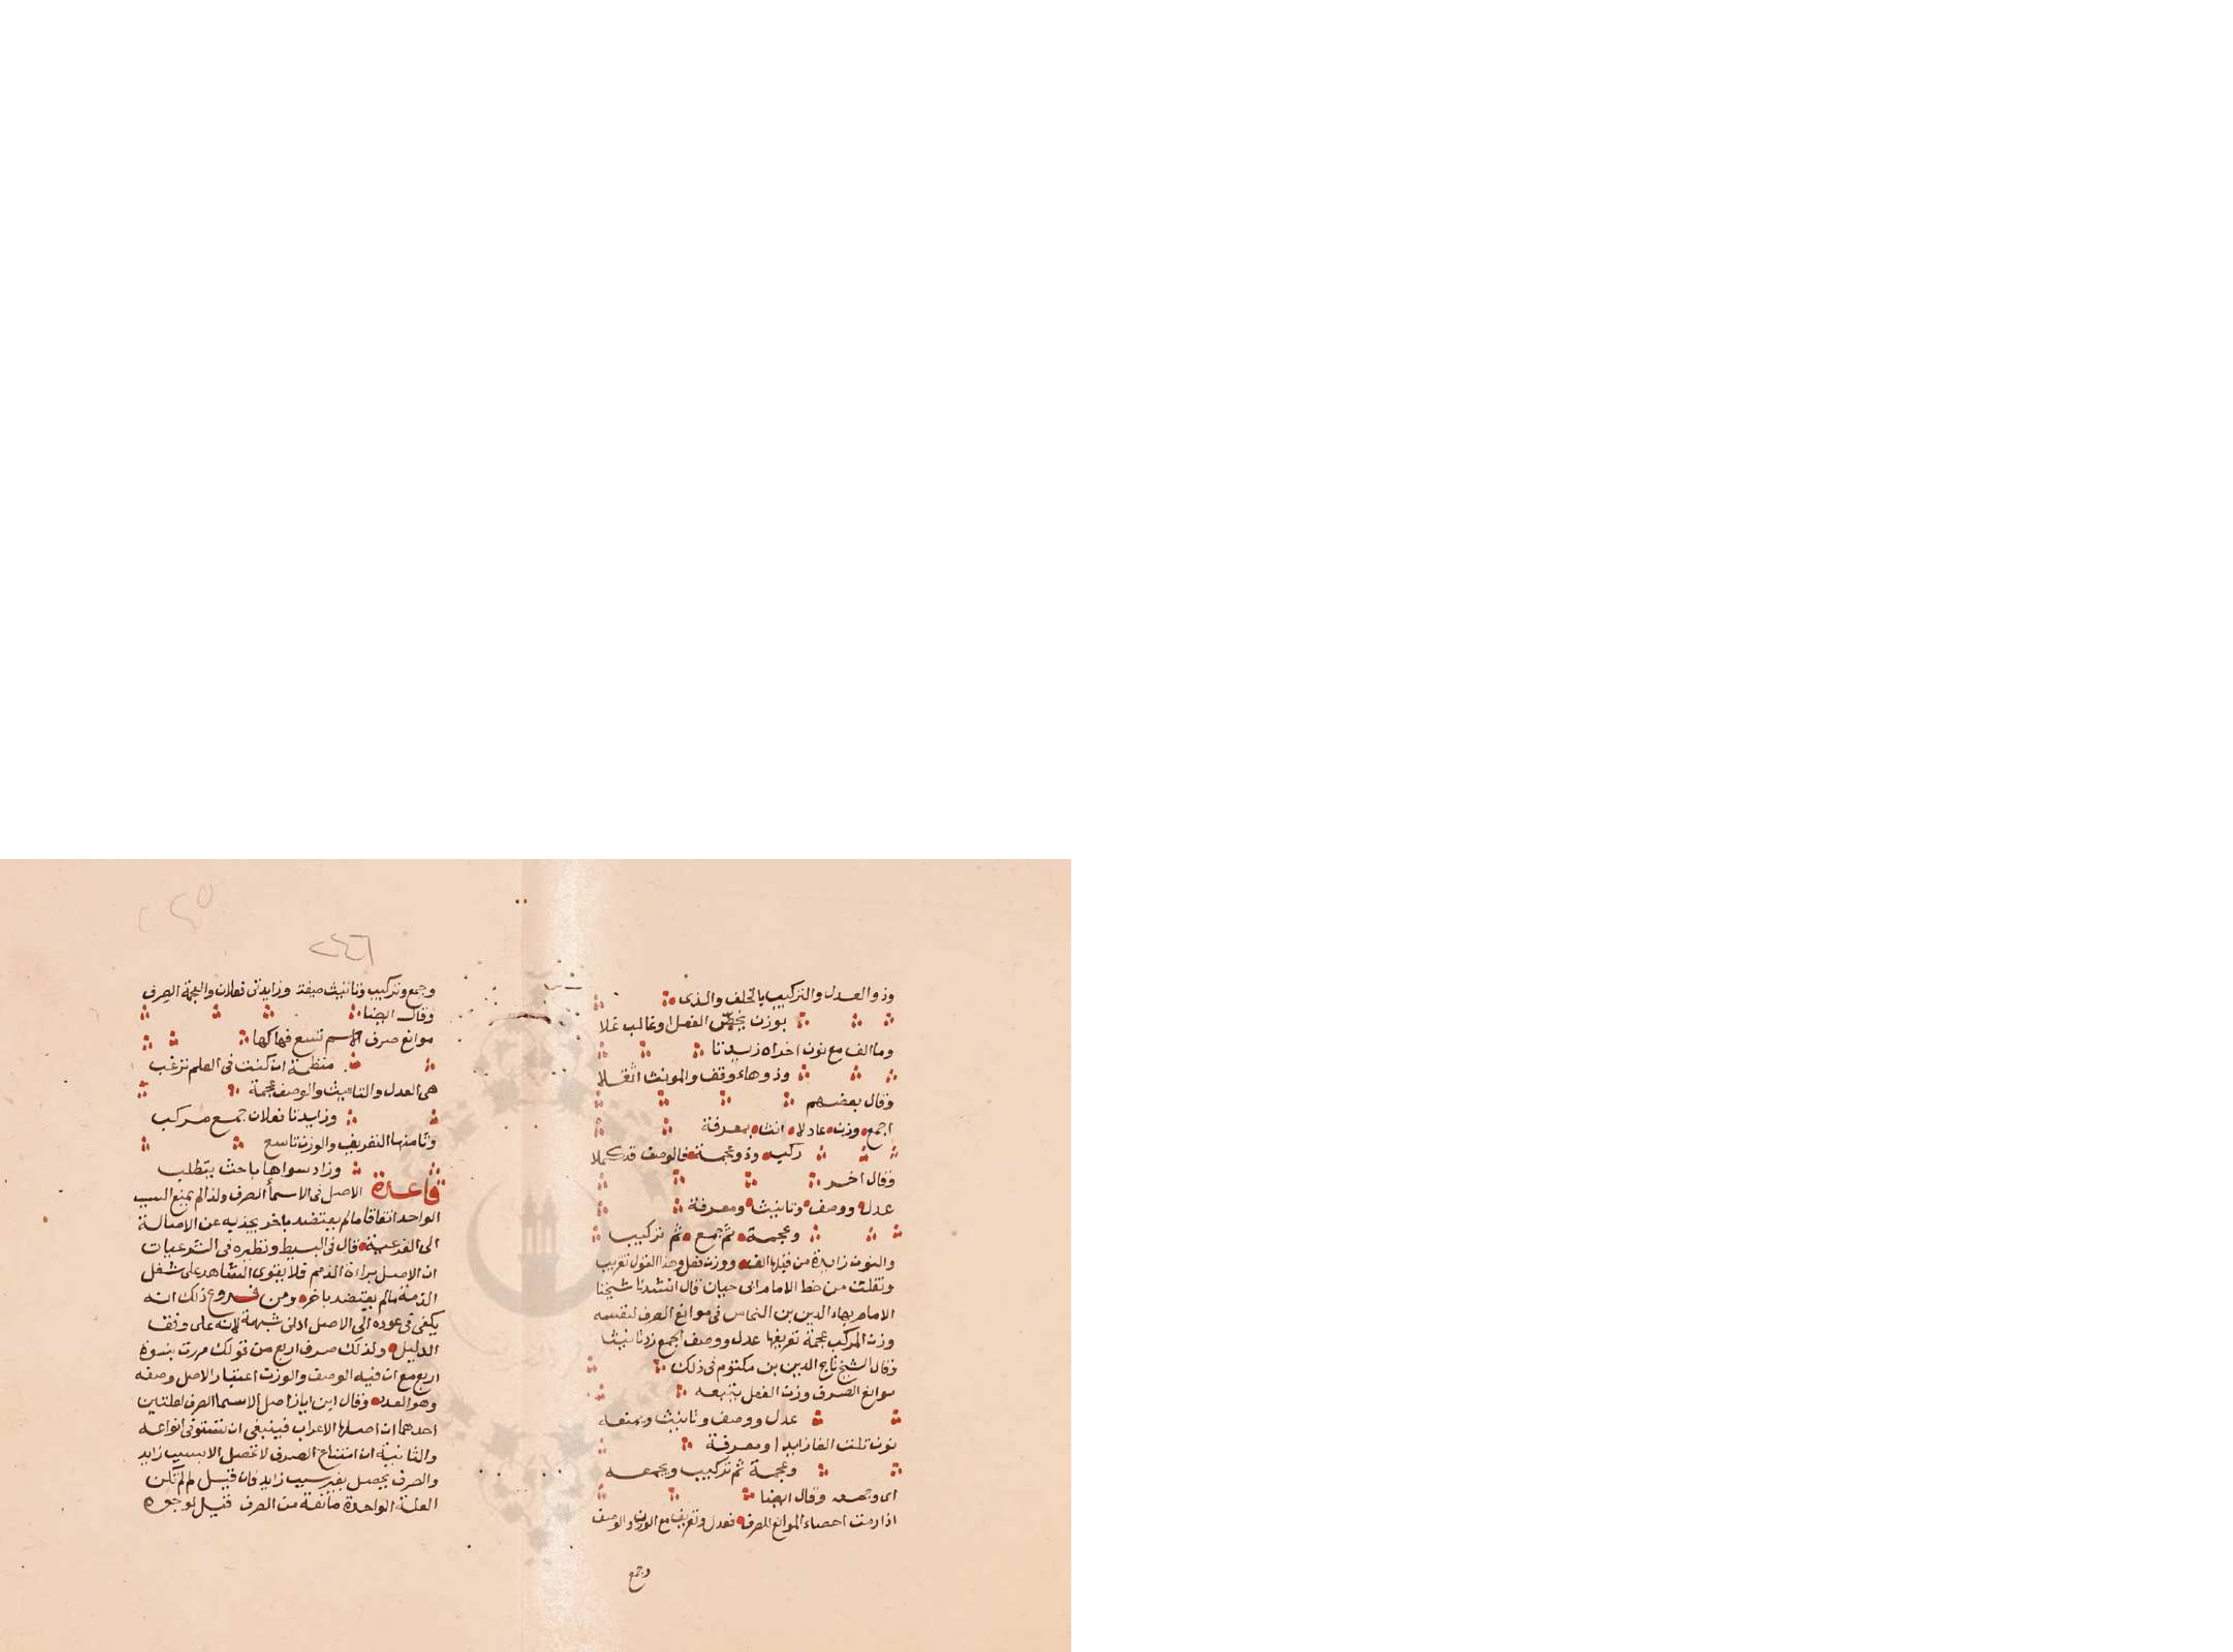 وذو العدل والتركيب بالخلف والذى
بوزن يخص الفعل او غالب علا
وما الف مع نون اخراه زيدتا
وذو هاء وقف والمونث اثقلا
وقال بعضهم
اجمع وزن عادلا انث بمعرفة
ركب وذو عجمة فالوصف قد كملا
وقال اخر
عدل ووصف وتانيث ومعرفة
وعجمة ثم جمع ثم تركيب
والنون زايدة من قبلها الف ووزن فعل وهذا القول تقريب
ونقلت من خط الامام ابى حيان قال انشدنا شيخنا
الامام بهاء الدين بن النحاس فى موانع الصرف لنفسه
وزن المركب عجمة تعريفها عدل ووصف الجمع زد تانيثا
وقال الشيخ تاج الدين بن مكتوم فى ذلك
موانع الصرف وزن الفعل يتبعه
عدل ووصف وتانيث ويمنعه
نون تلت الفا زايدا ومعرفة
وعجمة ثم تركيب ويجمعه
اى وجمعه وقال ايضا
اذا رمت احصاء الموانع للصرف فعدل وتعريف مع الوزن والوصف
وجمع
٢٤٥
٢٤٦
وجمع وتركيب وتانيث صيغة وزايدتى فعلان والعجمة الصرف
وقال ايضا
موانع صرف الاسم تسع فهاكها
منظمة ان كنت فى العلم ترغب
هى العدل والتانيث والوصف عجمة
وزايدتا فعلان جمع مركب
وثامنها التعريف والوزن تاسع
وزاد سواها باحث يتطلب
قاعدة الاصل فى الاسما الصرف ولذا لم يمنع السبب
الواحد اتفاقا مالم يعتضد باخر يجذبه عن الاصالة
الى الفرعية قال فى البسيط ونظيره فى الشرعيات
ان الاصل براءة الذمم فلا يقوى الشاهد على شغل
الذمة مالم يعتضد باخر ومن فروع ذلك انه
يكفى فى عوده الى الاصل ادنى شبهة لانه على وفق
الدليل ولذلك صرف اربع من قولك مررت بنسوة
اربع مع ان فيه الوصف والوزن اعتبار الاصل وصفه
وهو العدد وقال ابن اياز اصل الاسما الصرف لعلتين
احدهما ان اصلها الاعراب فينبغى ان تستوفى انواعه
والثانية ان امتناع الصرف لا تحصل الا بسبب زايد
والصرف يحصل بغير سبب زايد فان قيل لم لم تكن
العلة الواحدة مانعة من الصرف قيل لوجوه